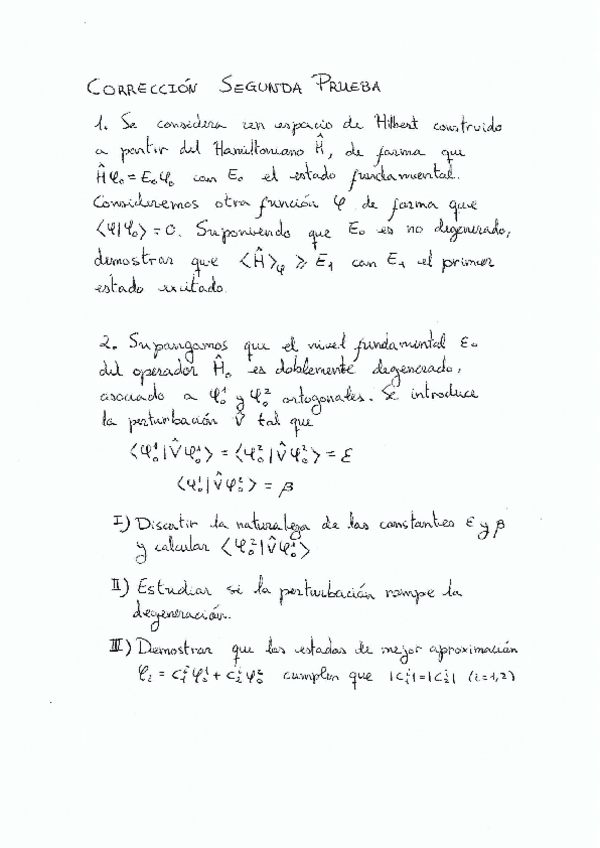 CORRECCIÓN SEGUNDA PRUEBA
1. Se considera un espacio de Hilbert construido
a partir del Hamiltoniano Ĥ, de forma que
Ĥφ₀ = E₀φ₀ con E₀ el estado fundamental.
Consideremos otra función φ de forma que
⟨φ|φ₀⟩ = 0. Suponiendo que E₀ es no degenerado,
demostrar que ⟨Ĥ⟩φ ⩾ E₁ con E₁ el primer
estado excitado.
2. Supongamos que el nivel fundamental ε₀
del operador Ĥ₀ es doblemente degenerado,
asociado a φ₀¹ y φ₀² ortogonales. Se introduce
la perturbación V̂ tal que
⟨φ₀¹|V̂φ₀¹⟩ = ⟨φ₀²|V̂φ₀²⟩ = ε
⟨φ₀¹|V̂φ₀²⟩ = β
I) Discutir la naturaleza de las constantes ε y β
y calcular ⟨φ₀²|V̂φ₀¹⟩
II) Estudiar si la perturbación rompe la
degeneración.
III) Demostrar que los estados de mejor aproximación
φᵢ = C₁ⁱφ₀¹ + C₂ⁱφ₀² cumplen que |C₁ⁱ| = |C₂ⁱ| (i=1,2)